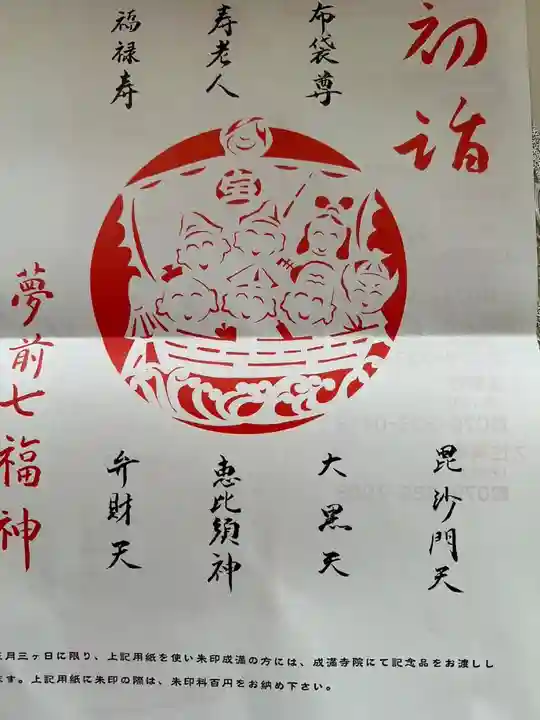 初詣
布袋尊
寿老人
福禄寿
宝
夢前七福神
毘沙門天
大黒天
恵比須神
弁財天
正月三ヶ日に限り、上記用紙を使い朱印成満の方には、成満寺院にて記念品をお渡しし
ます。上記用紙に朱印の際は、朱印料百円をお納め下さい。